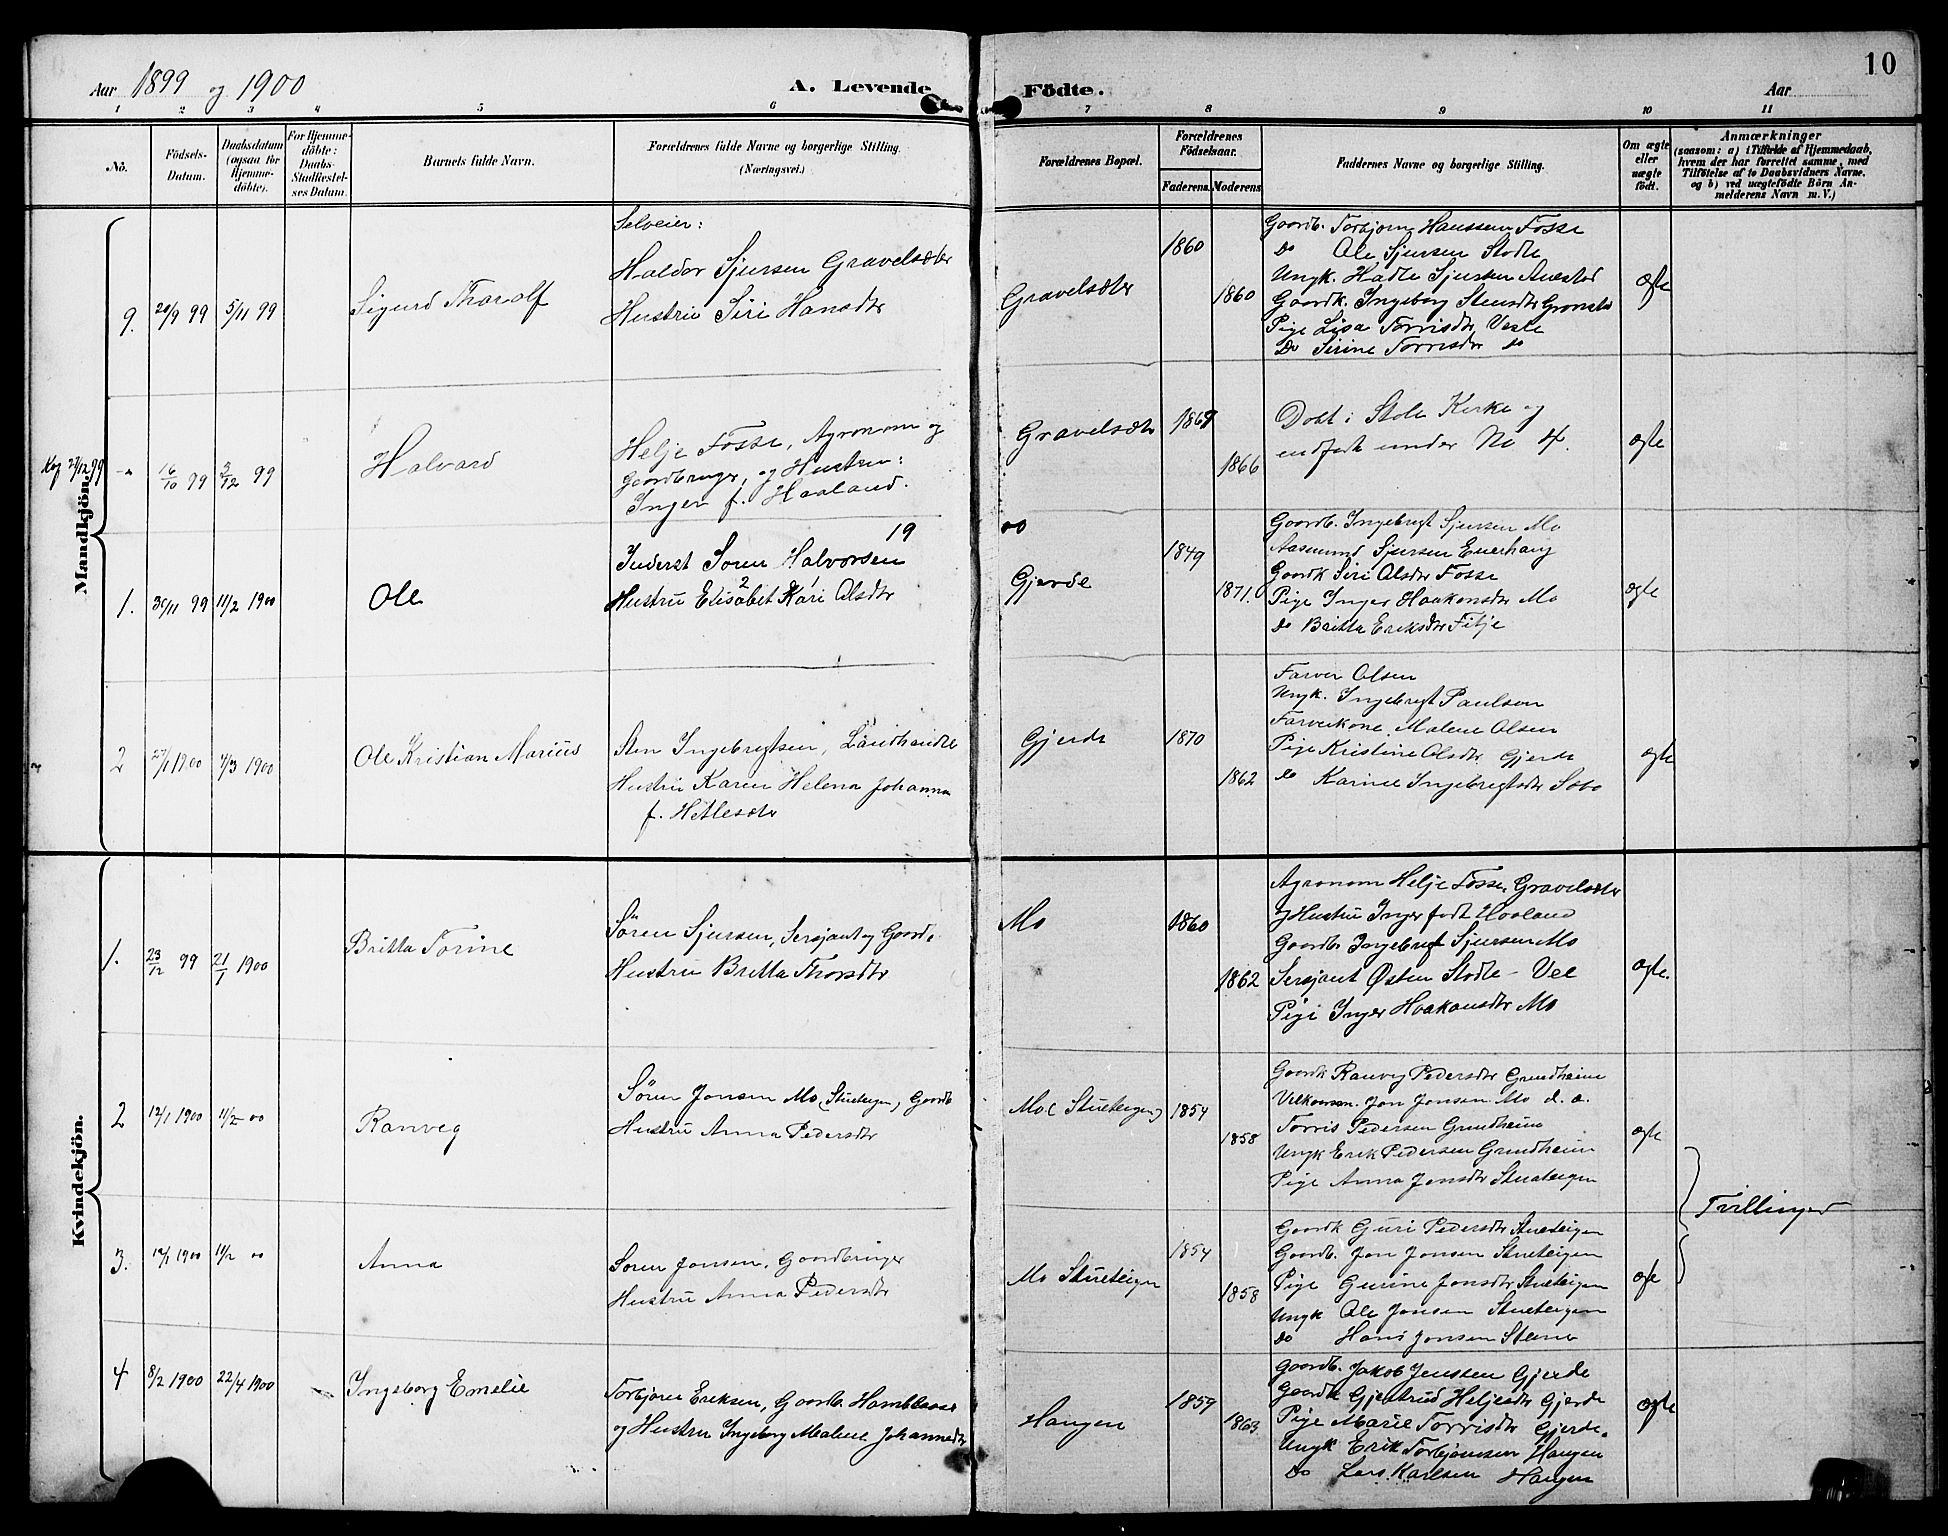 10
Aar 1899 og 1900
A. Levende
Födte.
Aar
1 2 3 4 5 6 7 8 9 10 11
No.
Födsels-
Datum.
Daabsdatum
(ogsaa for
Hjemme-
döbte).
For Hjemme-
döbte:
Daabs-
Stadfæstel-
ses Datum.
Barnets fulde Navn.
Forældrenes fulde Navne og borgerlige Stilling.
(Næringsvei.)
Forældrenes Bopæl.
Forældrenes
Födselsaar.
Faderens. Moderens.
Faddernes Navne og borgerlige Stilling.
Om ægte
eller
uægte
födt.
Anmærkninger
(saasom: a) i Tilfælde af Hjemmedaab,
hvem der har forrettet samme, med
Tilföielse af to Daabsvidners Navne,
og b) ved uægtefödte Börn An-
melderens Navn m. V.)
Mandkjön.
9. 20/9 99 5/11 99
Sigurd Thorolf
Selveier:
Haldor Sjursen Gravelsæter
Hustru Siri Hansdtr
Gravelsæter
1860
1860
Gaardb. Torbjorn Hanssen Fosse
Do Ole Sjursen Stodle
Ungk. Hadle Sjursen
Gaardk. Ingeborg Stensdtr
Pige Lisa Torrisdtr, Vesle
Do Sirine Torrisdtr do
ægte
16/10 99 3/12 99
Halvard
Helje Fosse, Agronom og
Gaardbruger, og Hustru:
Inger f. Haaland.
Gravelsæter
1867
1866
Døbt i Stole Kirke og
indført under No 4.
ægte
19
1. 30/11 99 11/2 1900
Ole
Inderst Soren Halvorsen
Hustru Elisabet Kari Olsdtr
2
Gjerde
1849
1871.
Gaardb. Ingebregt Sjursen Mo
Aasmund Sjursen
Gaardk Siri Olsdtr Fosse
Pige Inger Haakonsdtr Mo
do Britta Eriksdtr Fitje
ægte
2 27/1 1900 4/3 1900
Ole Kristian Marius
Sten Ingebregtsen, Landhandler
Hustru Karen Helena Johanna
f. Hetlesæter
Gjerde
1870
1862
Farver Olsen
Ungk. Ingebregt Paulsen
Farverkone Malene Olsen
Pige Kristine Olsdtr Gjerde
do Karine Ingebregtsdtr Sæbo
ægte
Kvindekjön.
1. 23/12 99 21/1 1900
Britta Torine
Sören Sjursen, Sersjant og Gaardb.
Hustru Britta Thorsdtr
Mo
1860
1862
Agronom Helje Fosse, Gravelsæter
og Hustru Inger født Haaland
Gaardbr Ingebregt Sjursen Mo
Sersjant Østen Stodle - Vee
Pige Inger Haakonsdtr Mo
ægte.
2 12/1 1900 11/2 00
Ranveg
Sören Jonsen Mo (Stueteigen) Gaardb
Hustru Anna Pedersdtr
Mo (Stueteigen)
1854
1858
Gaardk Ranveg Pedersdtr Grindheim
Jon Jonsen Mo
Torris Pedersen Grindheim
Ungk Erik Pedersen Grindheim
Pige Anna Jonsdtr Stueteigen
ægte
Tvillinger
3. 12/1 1900 11/2 00
Anna
Soren Jonsen, Gaardbruger
Hustru Anna Pedersdtr
Mo Stueteigen
1854
1858
Gaardk Guri Pedersdtr Stueteigen
Gaardb. Jon Jonsen Stueteigen
Pige Gurine Jonsdtr Stueteigen
Ungk Ole Jonsen Stueteigen
Do Hans Jonsen Steine
ægte
4 8/2 1900 22/4 1900
Ingeborg Emelie
Torbjörn Eriksen, Gaardb
og Hustru Ingeborg Malene Johannedtr
Haugen
1859
1863.
Gaardb. Jakob Jenssen Gjerde
Gaardk Gjertrud Heljesdtr Gjerde
Pige Marie Torrisdtr Gjerde.
Ungk Erik Torbjörnsen Haugen
Do Lars Karlsen Haugen
ægte